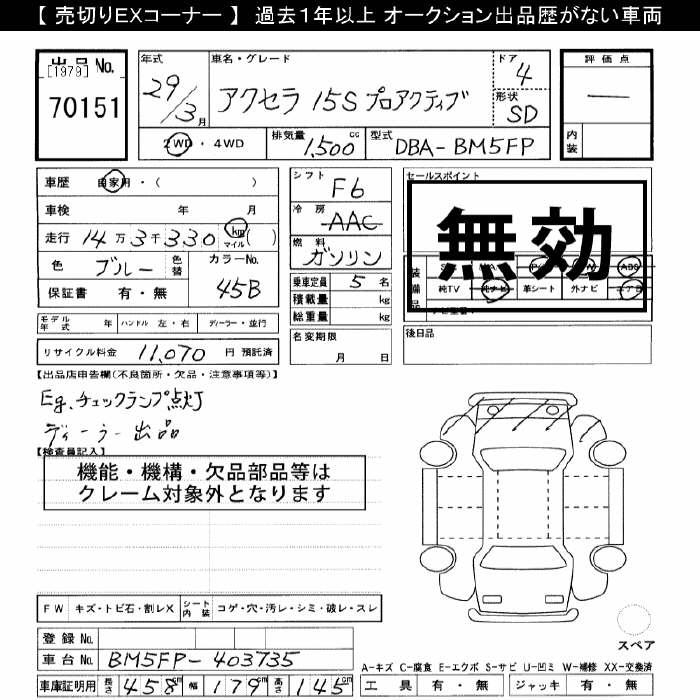 【 売切りEXコーナー 】 過去１年以上 オークション出品歴がない車両
出品 No.
[1979]
70151
年式
29/3月
車名・グレード
アクセラ 15S プロアクティブ
ドア
4
形状
SD
評価点
—
内装
2WD ・ 4WD
排気量
1,500 cc
型式
DBA-BM5FP
車歴 自家用・( )
車検 年 月
走行 14万3千330 km マイル ( )
色 ブルー 色替
カラーNo. 45B
保証書 有・無
シフト
F6
冷房
AAC
燃料
ガソリン
乗車定員 5 名
積載量 kg
総重量 kg
名変期限
月 日
セールスポイント
無効
装備品
ABS
純TV 純ナビ 革シート 外ナビ エアB
後日品
モデル年式 年 ハンドル 左・右 ディーラー・並行
リサイクル料金 11,070 円 預託済
【出品店申告欄(不良箇所・欠品・注意事項等)】
Eg.チェックランプ点灯
ディーラー出品
【検査員記入】
機能・機構・欠品部品等は
クレーム対象外となります
FW キズ・トビ石・割レX シート内装 コゲ・穴・汚レ・シミ・破レ・スレ
登録 No.
車台 No. BM5FP-403735
車庫証明用 長さ 458cm 幅 179cm 高さ 145cm
スペア
A-キズ C-腐食 E-エクボ S-サビ U-凹ミ W-補修 XX-交換済
工具 有・無 ジャッキ 有・無